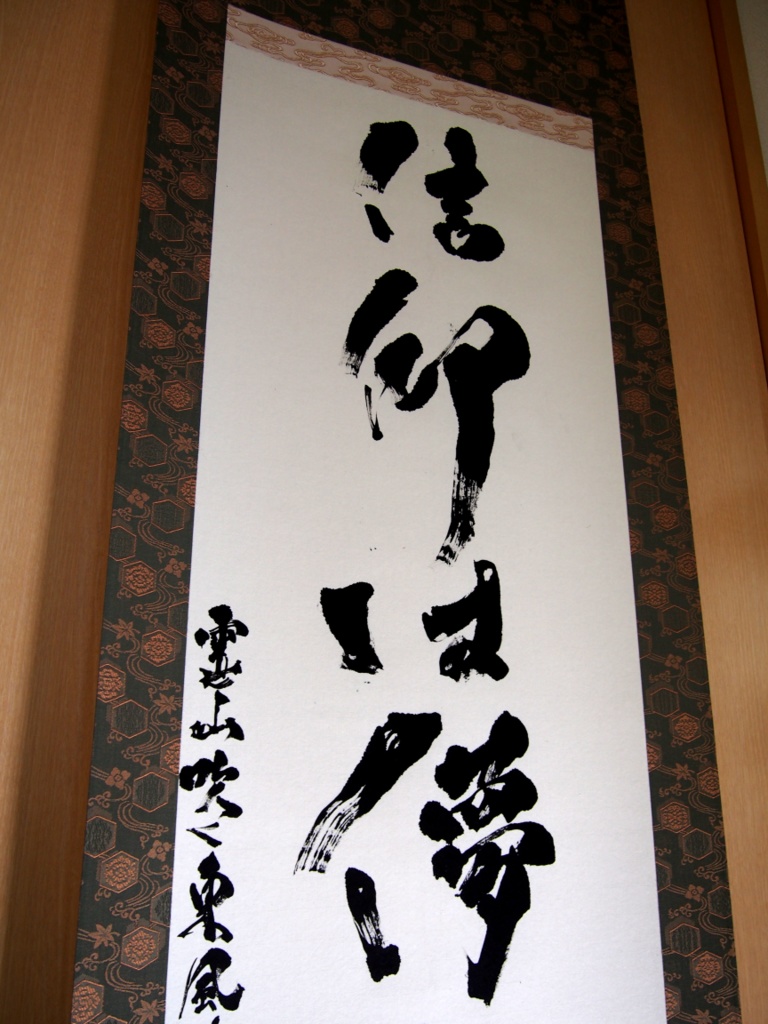 信仰は儚
霊山吹く東風